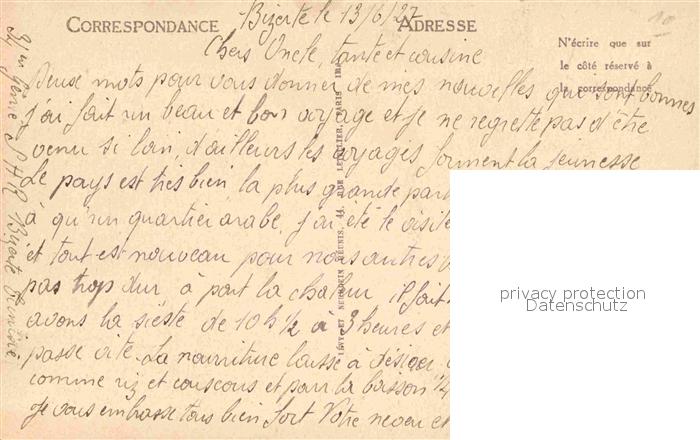 CORRESPONDANCE
ADRESSE
N'écrire que sur
le côté réservé à
la correspondance
Bizerte le 13/6/27
Chers Oncle, tante et cousine
Deux mots pour vous donner de mes nouvelles qui sont bonnes
j'ai fait un beau et bon voyage et je ne regrette pas d'être
venu si loin, d'ailleurs les voyages forment la jeunesse
Le pays est très bien, la plus grande par
à qu'un quartier arabe, j'ai été le visite
et tout est nouveau pour nous autres
pas trop dur, à part la chaleur il fait
avons la sieste de 10h 1/2 à 3 heures et
passe vite. La nourriture laisse à désirer
comme riz et couscous et pour la boisson 1/4
Je vous embrasse tous bien fort Votre neveu et
LÉVY ET NEURDEIN RÉUNIS, 44, RUE LETELLIER, PARIS IMP.
Génie Bizerte Tunisie
privacy protection
Datenschutz